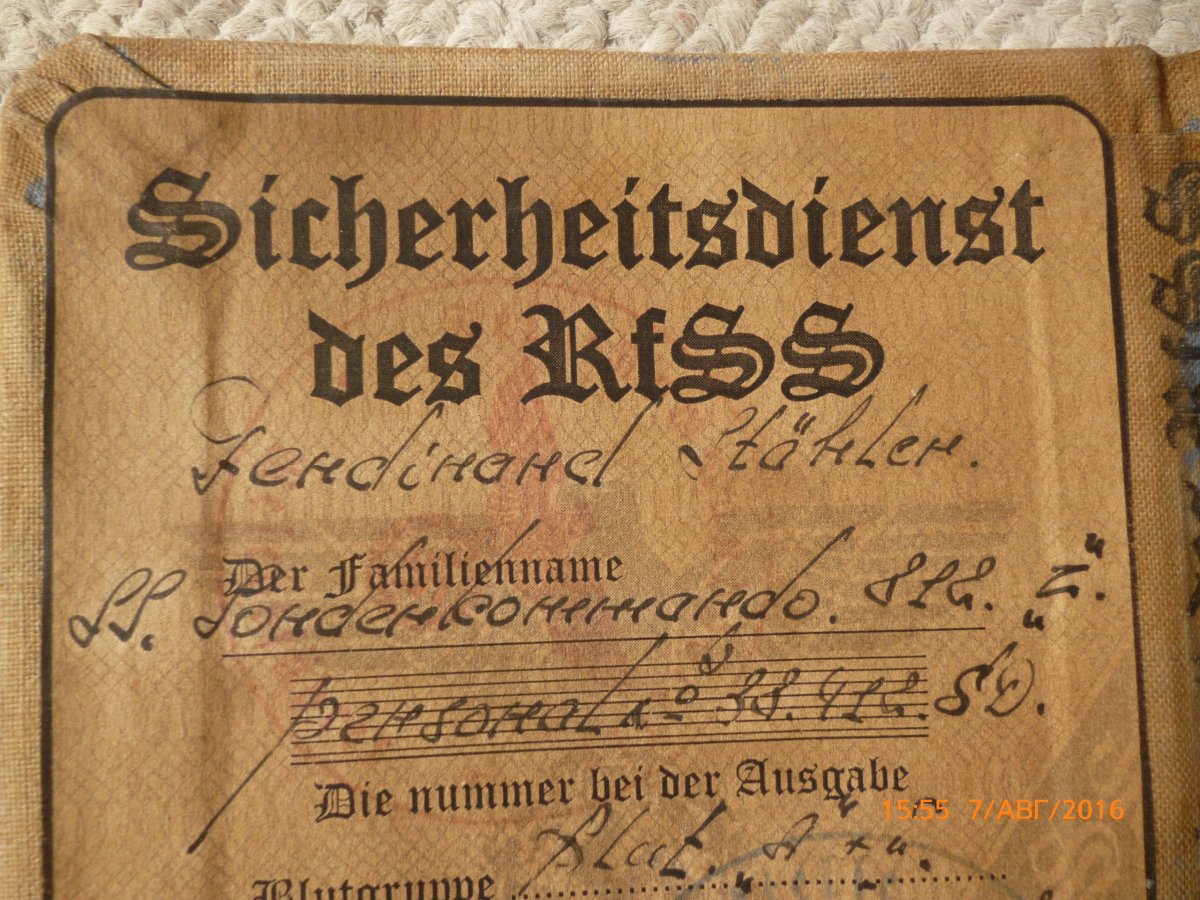 Sicherheitsdienst
des RfSS
Ferdinand Stähler.
Der Familienname
SS. Sonderkommando.
Personal No 38. SD.
Die nummer bei der Ausgabe
15:55 7/АВГ/2016
Blut. "A+".
Blutgruppe